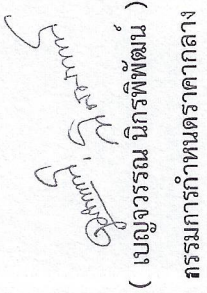 ( เบญจวรรณ นิกรพิพัฒน์ )
กรรมการกำหนดราคากลาง